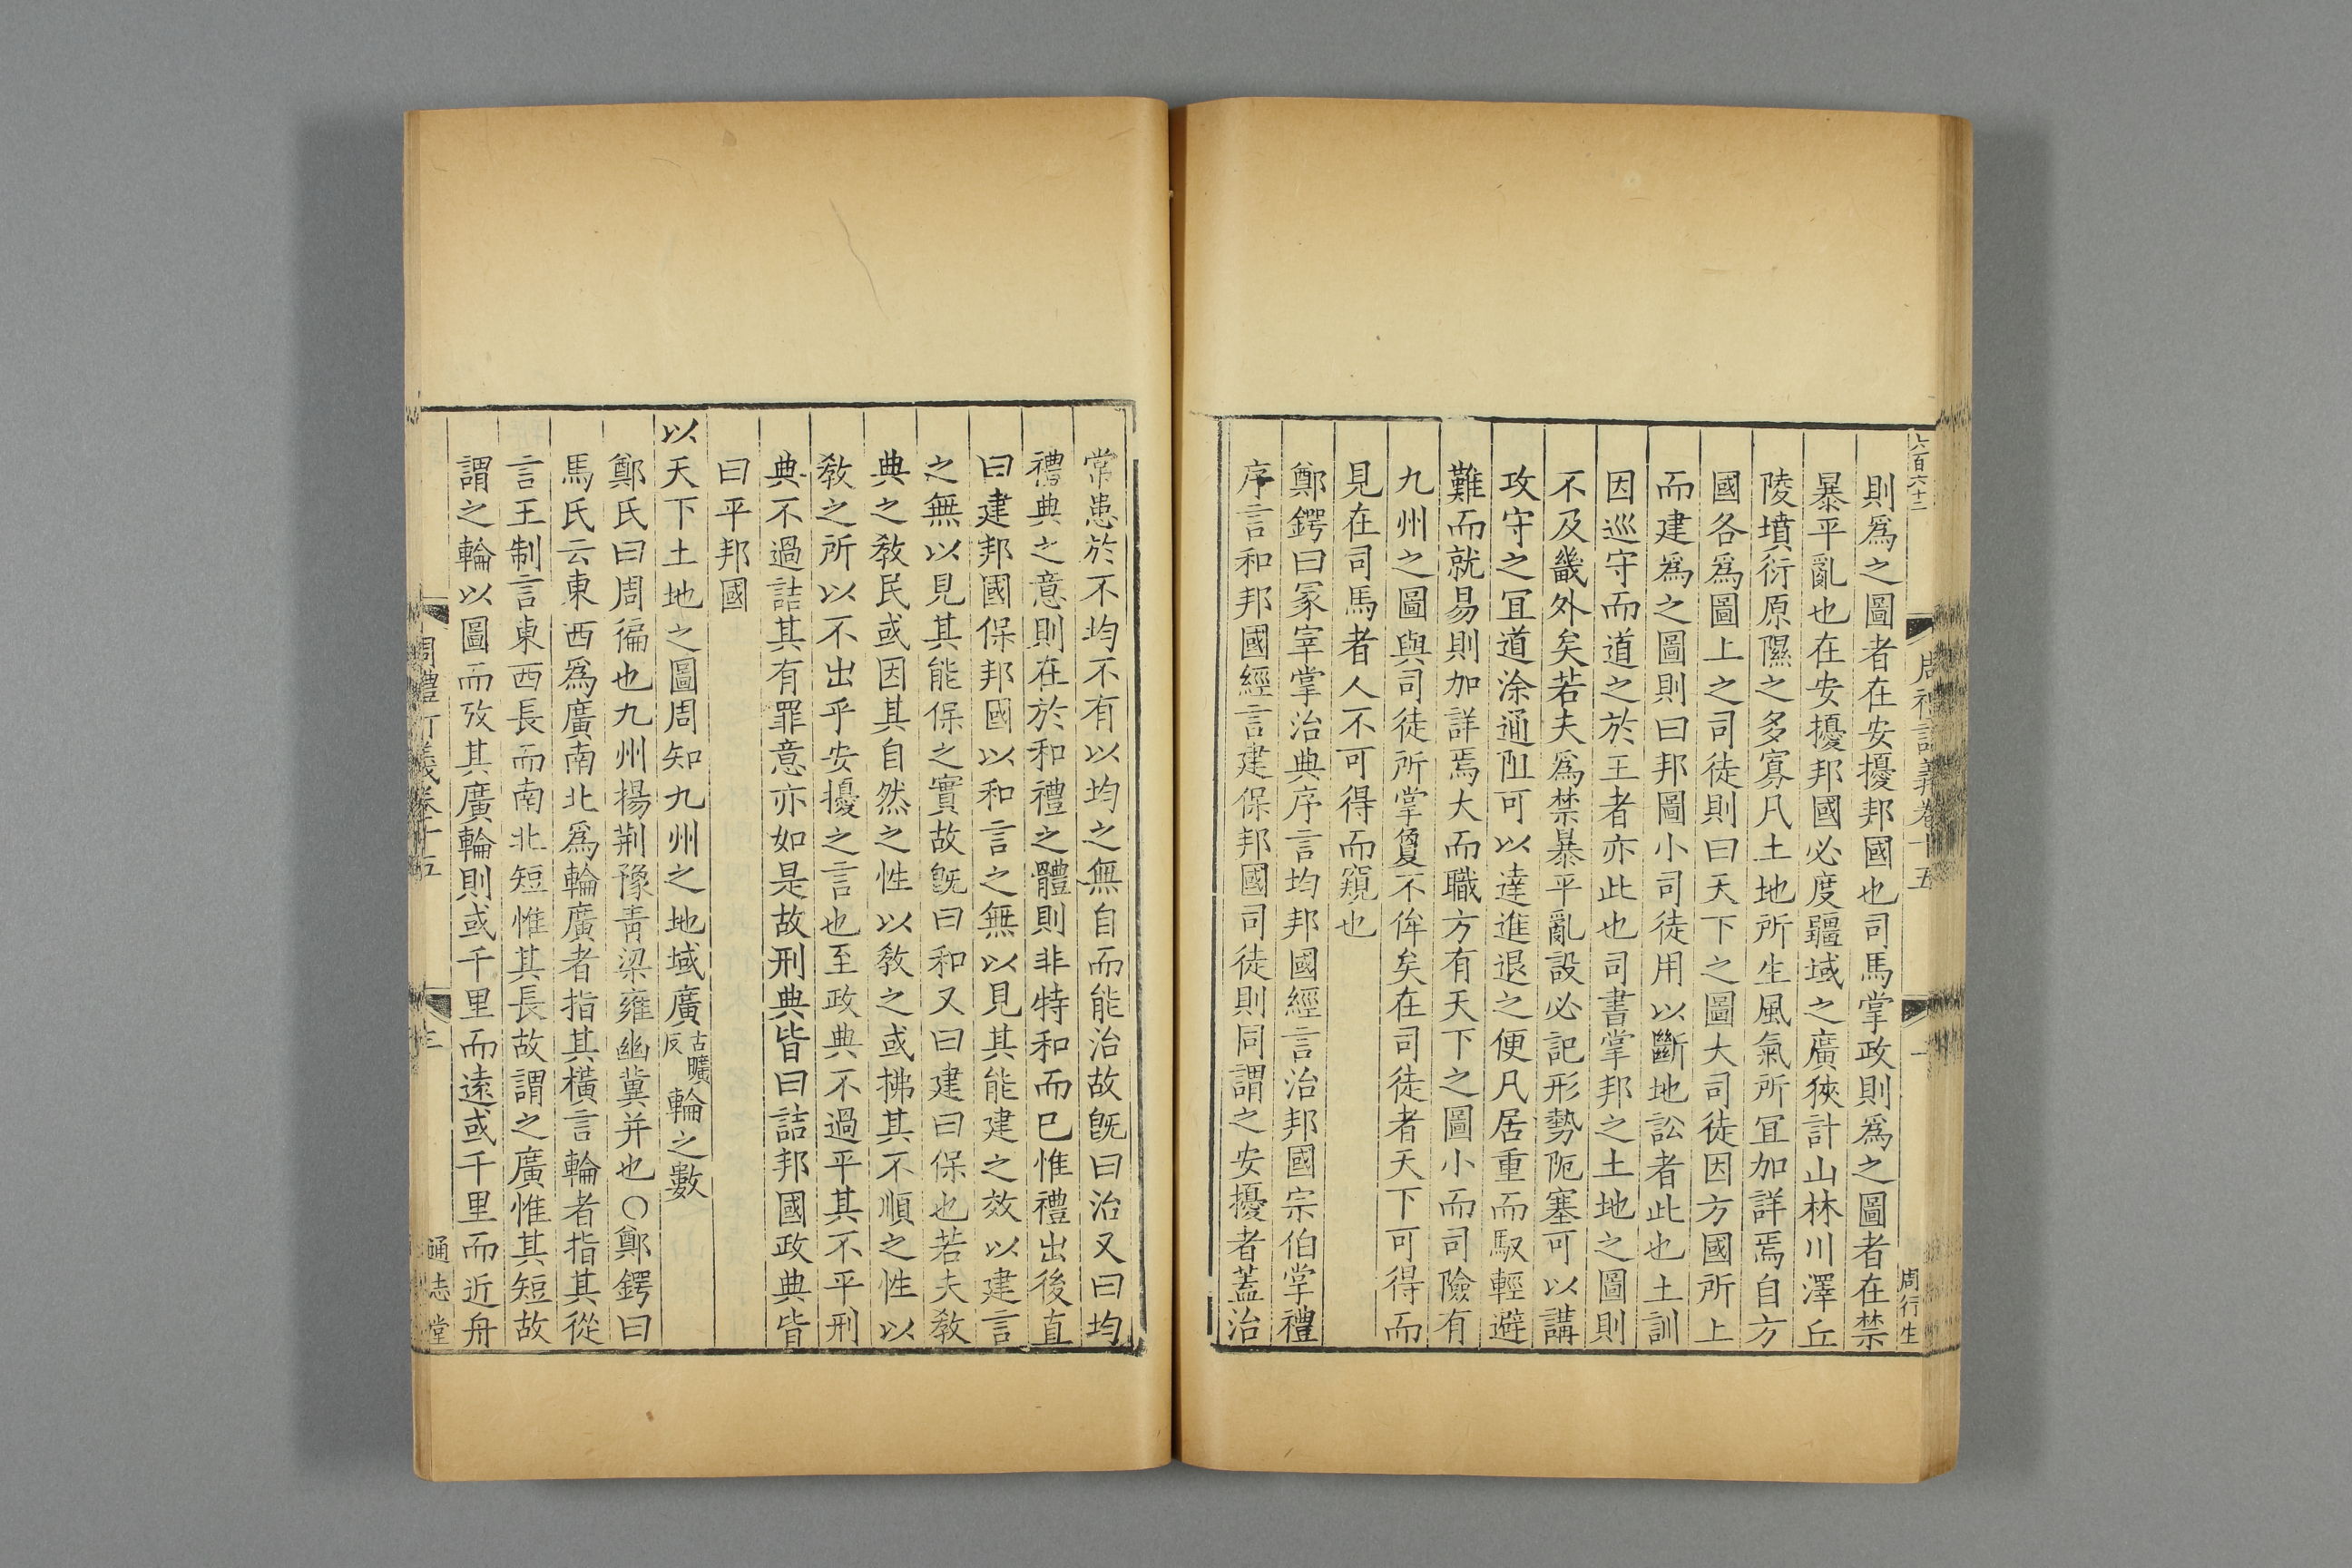 六百六十二
周禮訂義卷十五
一
周行生
則爲之圖者在安擾邦國也司馬掌政則爲之圖者在禁
暴平亂也在安擾邦國必度疆域之廣狹計山林川澤丘
陵墳衍原隰之多寡凡土地所生風氣所冝加詳焉自方
國各爲圖上之司徒則曰天下之圖大司徒因方國所上
而建爲之圖則曰邦圖小司徒用以斷地訟者此也土訓
因巡守而道之於王者亦此也司書掌邦之土地之圖則
不及畿外矣若夫爲禁暴平亂設必記形勢阨塞可以講
攻守之冝道涂通阻可以達進退之便凡居重而馭輕避
難而就易則加詳焉大而職方有天下之圖小而司險有
九州之圖與司徒所掌敻不侔矣在司徒者天下可得而
見在司馬者人不可得而窺也
鄭鍔曰冢宰掌治典序言均邦國經言治邦國宗伯掌禮
序言和邦國經言建保邦國司徒則同謂之安擾者蓋治
常患於不均不有以均之無自而能治故旣曰治又曰均
禮典之意則在於和禮之體則非特和而已惟禮出後直
曰建邦國保邦國以和言之無以見其能建之效以建言
之無以見其能保之實故旣曰和又曰建曰保也若夫敎
典之敎民或因其自然之性以敎之或拂其不順之性以
敎之所以不出乎安擾之言也至政典不過平其不平刑
典不過詰其有罪意亦如是故刑典皆曰詰邦國政典皆
曰平邦國
以天下土地之圖周知九州之地域廣古曠反輪之數
鄭氏曰周徧也九州揚荆豫靑梁雍幽冀并也○鄭鍔曰
馬氏云東西爲廣南北爲輪廣者指其橫言輪者指其從
言王制言東西長而南北短惟其長故謂之廣惟其短故
謂之輪以圖而攷其廣輪則或千里而遠或千里而近舟
周禮訂義卷十五
三
通志堂